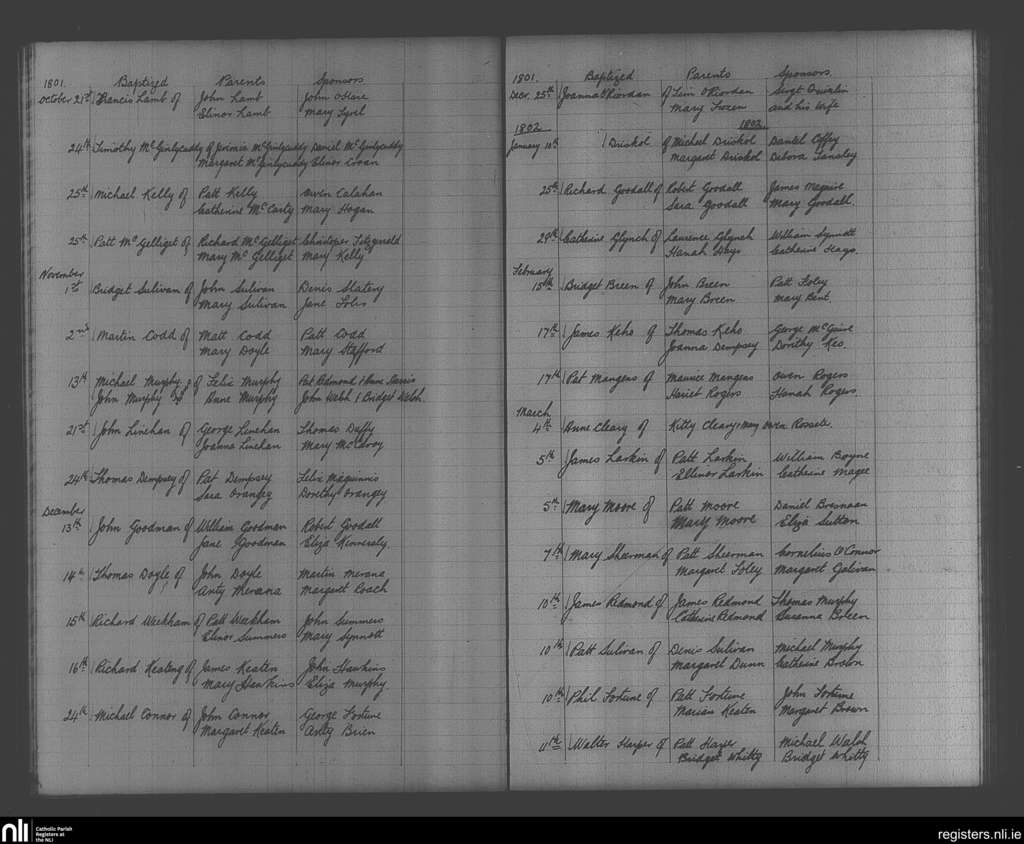 1801. Baptized Parents Sponsors
October 21st Francis Lamb of John Lamb John O'Hare
Elinor Lamb Mary
24th Timothy McGinlycuddy of Jeremia McGinlycuddy Daniel McGinlycuddy
Margaret McGinlycuddy Elinor
25th Michael Kelly of Patt Kelly Owen Calahan
Catherine McCarty Mary Hogan
25th Patt McGelliget of Richard McGelliget Christoper Fitzgerald
Mary McGelliget Mary Kelly
November
1st Bridget Sulivan of John Sulivan Denis Slatery
Mary Sulivan Jane
2nd Martin Codd of Matt Codd Patt Codd
Mary Doyle Mary Stafford
13th Michael Murphy & of Felix Murphy Pat Redmond & Anne
John Murphy Anne Murphy John Welsh & Bridget Welsh.
21st John Linehan of George Linehan Thomas Duffy
Joanna Linehan Mary McEvoy
24th Thomas Dempsey of Pat Dempsey Felix Maguinnis
Sara Orangey Dorethy Orangey
December
13th John Goodman of William Goodman Robert Goodall
Jane Goodman Eliza
14th Thomas Doyle of John Doyle Martin Merana
Anty Merana Margaret Roach
15th Richard Wackham of Patt Wackham John Summers
Elinor Summers Mary Synnott
16th Richard Keating of James Keaten John Hawkins
Mary Hawkins Eliza Murphy
24th Michael Connor of John Connor George Fortune
Margaret Keaten Anty Brien
1801. Baptized Parents Sponsors
Decr. 25th Joanna O'Riordan of Tim O'Riordan Sergt Quinlin
Mary and his Wife
1802 1802
January 10th Driskol of Michael Driskol Daniel Coffey
Margaret Driskol Debora
25th Richard Goodall of Robert Goodall James Maguire
Sara Goodall Mary Goodall.
29th Catherine Glynch of Laurence Glynch William Synnott
Hanah Hays Catherine Hays.
February
15th Bridget Breen of John Breen Patt Foley
Mary Breen Mary Bent.
17th James Keho of Thomas Keho George McGuire
Joanna Dempsey Dorithy Keo.
17th Pat Mangens of Maurice Mangens Owen Rogers
Hariet Rogers Hanah Rogers.
March
4th Anne Cleary of Kitty Cleary Owen Rossete.
5th James Larkin of Patt Larkin William Boyne
Ellinor Larkin Catherine Magee
5th Mary Moore of Patt Moore Daniel Brosnan
Mary Moore Eliza Sutton
7th Mary Sheerman of Patt Sheerman Cornelius O'Connor
Margaret Foley Margaret Galivan
10th James Redmond of James Redmond Thomas Murphy
Catherine Redmond Susanna Breen
10th Patt Sulivan of Denis Sulivan Michael Murphy
Margaret Dunn Catherine Brown
10th Phil Fortune of Patt Fortune John Fortune
Marian Keaten Margaret Brown
11th Walter Harper of Patt Harper Michael Walsh
Bridget Whitty Bridget Whitty
nli Catholic Parish
Registers at
the NLI
registers.nli.ie